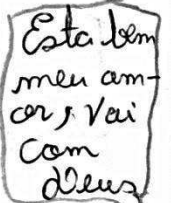 Esta bem
meu am-
or, Vai
com
Deus